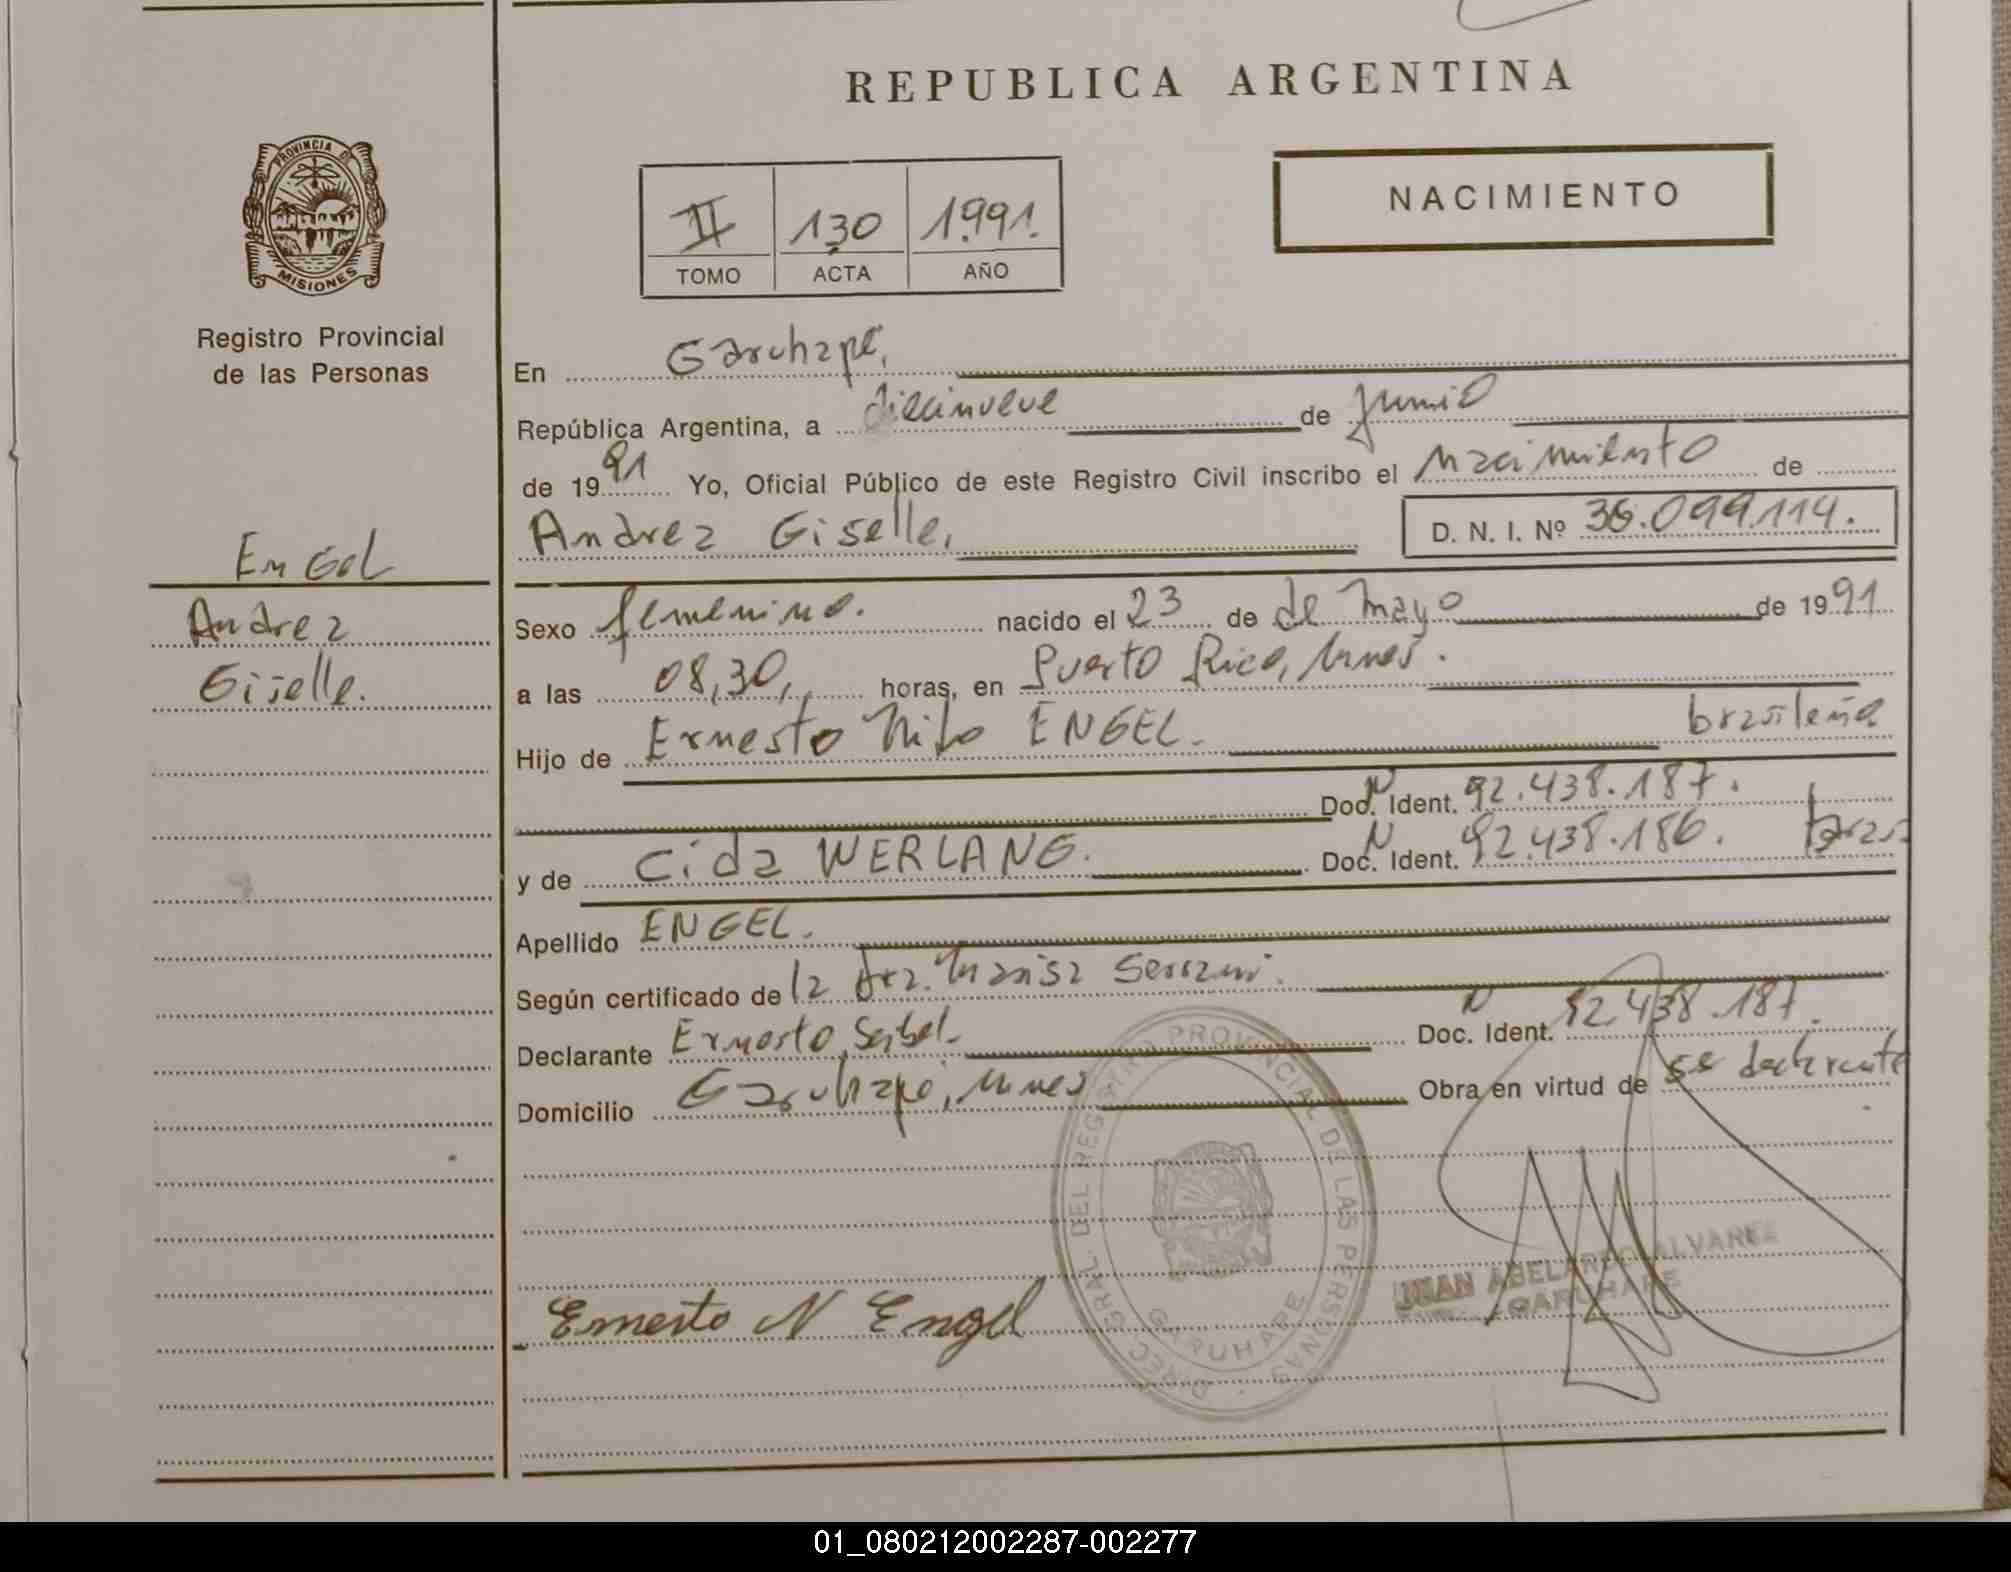 REPUBLICA ARGENTINA
PROVINCIA DE
MISIONES
Registro Provincial
de las Personas
II 130 1991.
TOMO ACTA AÑO
NACIMIENTO
En Garuhapé,
República Argentina, a diecinueve de Junio
de 1991 Yo, Oficial Público de este Registro Civil inscribo el nacimiento de
Andrea Giselle.
D. N. I. Nº 36.099.114.
Engel
Andrea
Giselle.
Sexo femenino. nacido el 23 de de mayo de 1991
a las 08,30, horas, en Puerto Rico, Mnes.
Hijo de Ernesto ENGEL. brasileña
Doc. Ident. 92.438.187.
y de Cida WERLANG. Doc. Ident. 92.438.186. bras
Apellido ENGEL.
Según certificado de la dra. Marisa
Declarante Ernesto Doc. Ident. 92.438.187.
Domicilio Garuhapé, Mnes Obra en virtud de ser declarante
DIREC. GRAL. DEL REGISTRO PROVINCIAL DE LAS PERSONAS
GARUHAPE
Ernesto N Engel
JUAN ABELARDO ALVAREZ
GARUHAPE
01_080212002287-002277